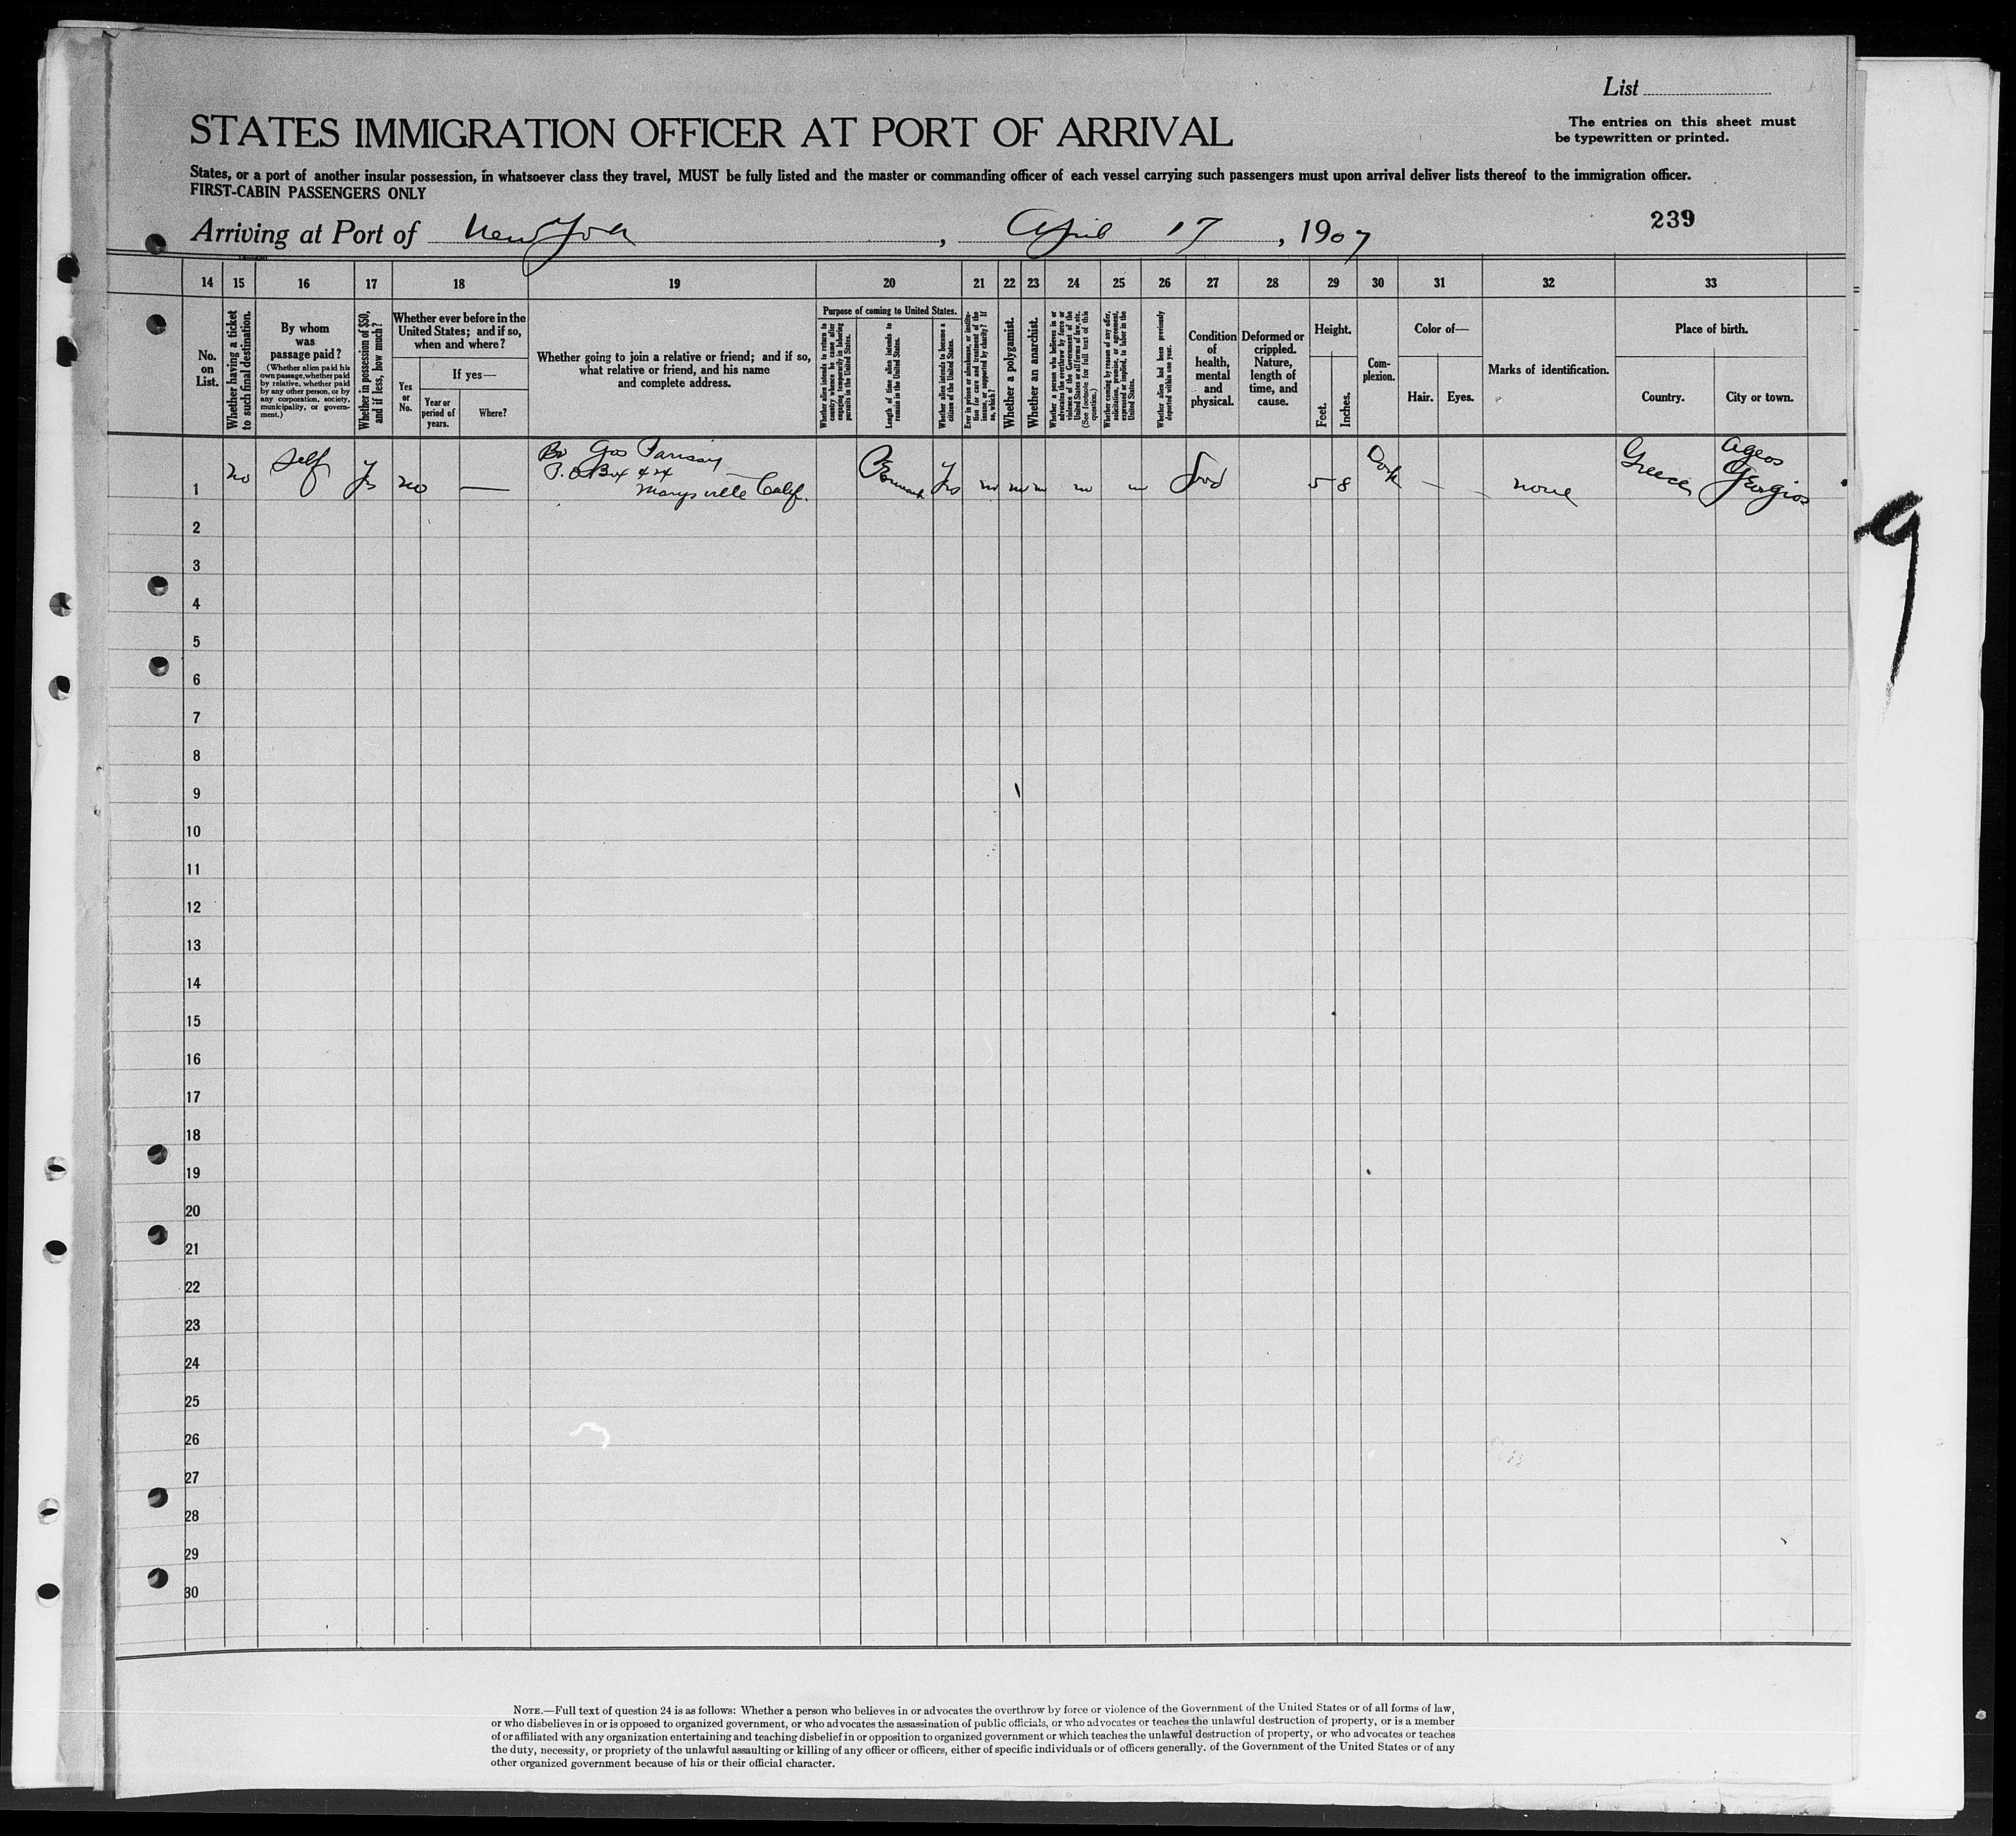 List
The entries on this sheet must
be typewritten or printed.
STATES IMMIGRATION OFFICER AT PORT OF ARRIVAL
States, or a port of another insular possession, in whatsoever class they travel, MUST be fully listed and the master or commanding officer of each vessel carrying such passengers must upon arrival deliver lists thereof to the immigration officer.
FIRST-CABIN PASSENGERS ONLY
239
Arriving at Port of New York, April 17, 1907
14 15 16 17 18 19 20 21 22 23 24 25 26 27 28 29 30 31 32 33
No. on List.
Whether having a ticket to such final destination.
By whom was passage paid?
(Whether alien paid his own passage, whether paid by relative, whether paid by any other person, or by any corporation, society, municipality, or government.)
Whether in possession of $50, and if less, how much?
Whether ever before in the United States; and if so, when and where?
Yes or No.
If yes—
Year or period of years.
Where?
Whether going to join a relative or friend; and if so, what relative or friend, and his name and complete address.
Purpose of coming to United States.
Whether alien intends to return to country whence he came after engaging temporarily in laboring pursuits in the United States.
Length of time alien intends to remain in the United States.
Whether alien intends to become a citizen of the United States.
Ever in prison or almshouse, or institution for care and treatment of the insane, or supported by charity? If so, which?
Whether a polygamist.
Whether an anarchist.
Whether a person who believes in or advocates the overthrow by force or violence of the Government of the United States or all forms of law, etc. (See footnote for full text of this question.)
Whether coming by reason of any offer, solicitation, promise, or agreement, expressed or implied, to labor in the United States.
Whether alien had been previously deported within one year.
Condition of health, mental and physical.
Deformed or crippled. Nature, length of time, and cause.
Height.
Feet.
Inches.
Complexion.
Color of—
Hair.
Eyes.
Marks of identification.
Place of birth.
Country.
City or town.
1 no self Yes no — Bro Gos
P.O Box 424
Marysville Calif.
Permanent Yes no no no no no Good 5 8 Dark — — none Greece Ageos Georgios
2
3
4
5
6
7
8
9
10
11
12
13
14
15
16
17
18
19
20
21
22
23
24
25
26
27
28
29
30
NOTE.—Full text of question 24 is as follows: Whether a person who believes in or advocates the overthrow by force or violence of the Government of the United States or of all forms of law,
or who disbelieves in or is opposed to organized government, or who advocates the assassination of public officials, or who advocates or teaches the unlawful destruction of property, or is a member
of or affiliated with any organization entertaining and teaching disbelief in or opposition to organized government or which teaches the unlawful destruction of property, or who advocates or teaches
the duty, necessity, or propriety of the unlawful assaulting or killing of any officer or officers, either of specific individuals or of officers generally. of the Government of the United States or of any
other organized government because of his or their official character.
9